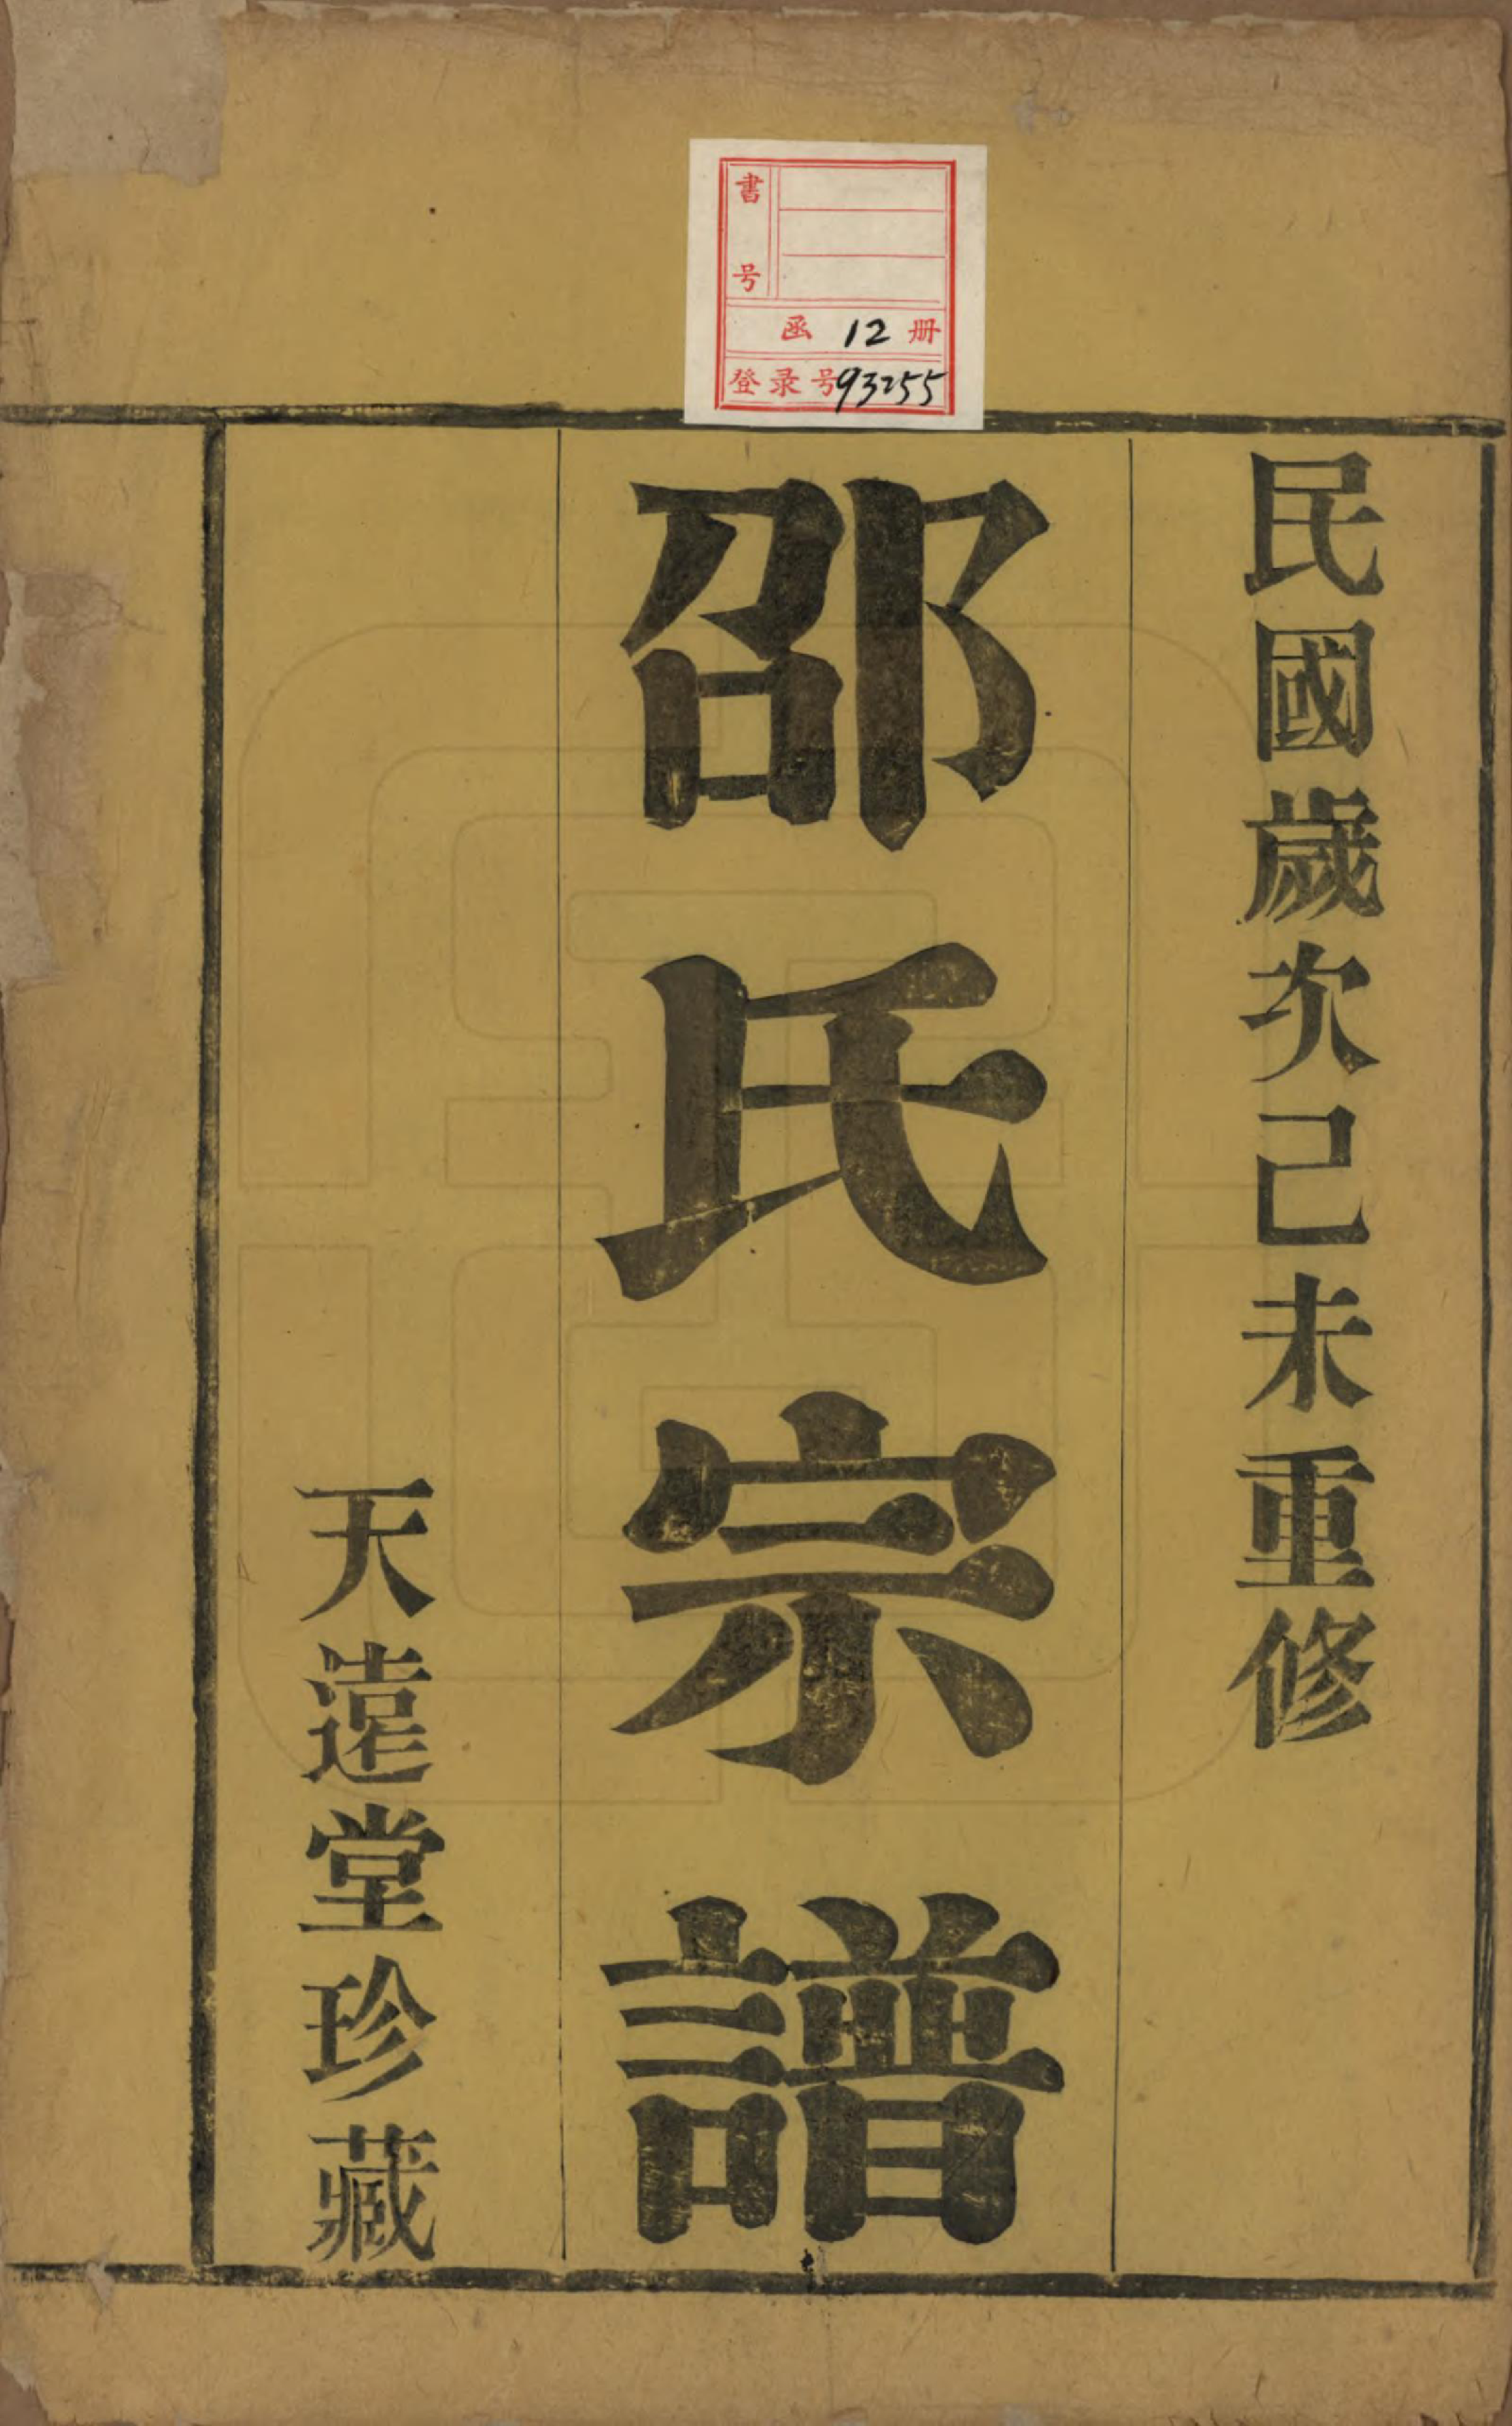 書号
函 12 册
登录号93255
民國歲次己未重修
邵氏宗譜
天遠堂珍藏